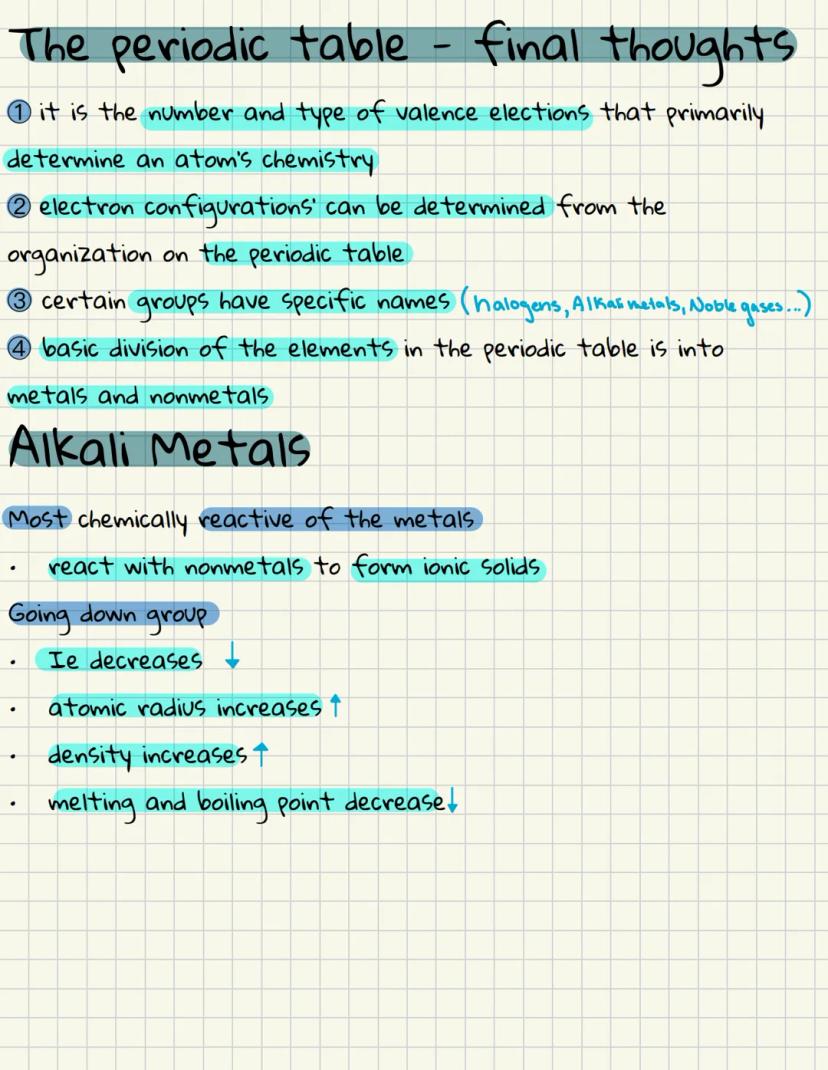 The periodic table - final thoughts
① it is the number and type of valence elections that primarily
determine an atom's chemistry
② electron configurations' can be determined from the
organization on the periodic table
③ certain groups have specific names (halogens, Alkali metals, Noble gases...)
④ basic division of the elements in the periodic table is into
metals and nonmetals
Alkali Metals
Most chemically reactive of the metals
· react with nonmetals to form ionic solids
Going down group
· Ie decreases ↓
· atomic radius increases ↑
· density increases ↑
· melting and boiling point decrease ↓